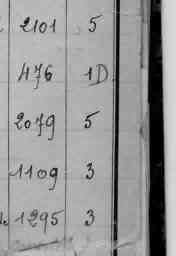 2101 5
476 1D
2079 5
1109 3
1295 3